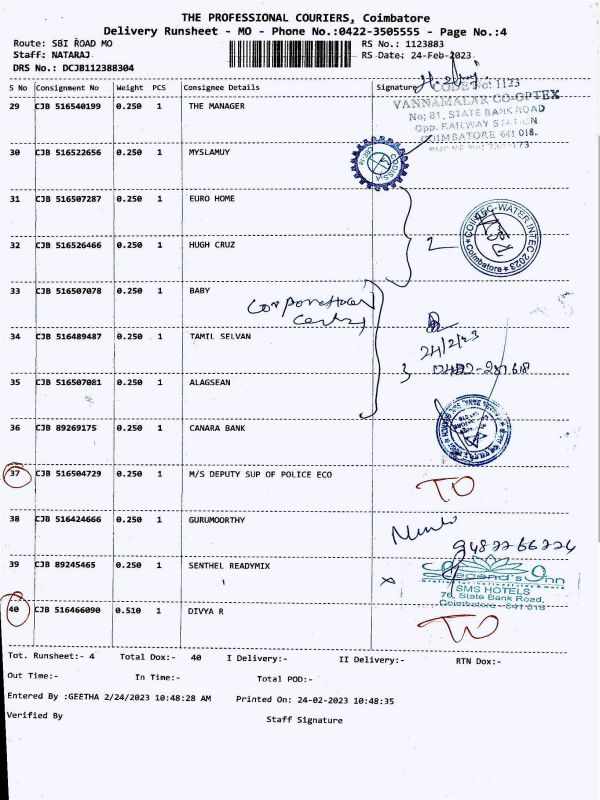 THE PROFESSIONAL COURIERS, Coimbatore
Delivery Runsheet - MO - Phone No.:0422-3505555 - Page No.:4
Route: SBI ROAD MO
RS No.: 1123883
Staff: NATARAJ
RS Date: 24-Feb-2023
DRS No.: DCJB112388304
S No Consignment No Weight PCS Consignee Details Signature
CODE No: 1123
29 CJB 516540199 0.250 1 THE MANAGER
VANNAMALAR CO-OPTEX
No; 81, STATE BANK ROAD
Opp. RAILWAY STATION
COIMBATORE 641 018.
30 CJB 516522656 0.250 1 MYSLAMUY
CODISSIA
31 CJB 516507287 0.250 1 EURO HOME
32 CJB 516526466 0.250 1 HUGH CRUZ
2
WATER INTEC 2023
Coimbatore
33 CJB 516507078 0.250 1 BABY
Corporation
34 CJB 516489487 0.250 1 TAMIL SELVAN
24/2/23
3
35 CJB 516507081 0.250 1 ALAGSEAN
36 CJB 89269175 0.250 1 CANARA BANK
37 CJB 516504729 0.250 1 M/S DEPUTY SUP OF POLICE ECO
TO
38 CJB 516424666 0.250 1 GURUMOORTHY
39 CJB 89245465 0.250 1 SENTHEL READYMIX
Legend's Inn
SMS HOTELS
76, State Bank Road,
Coimbatore - 641 018
40 CJB 516466090 0.510 1 DIVYA R
TO
Tot. Runsheet:- 4 Total Dox:- 40 I Delivery:- II Delivery:- RTN Dox:-
Out Time:- In Time:- Total POD:-
Entered By :GEETHA 2/24/2023 10:48:28 AM Printed On: 24-02-2023 10:48:35
Verified By Staff Signature